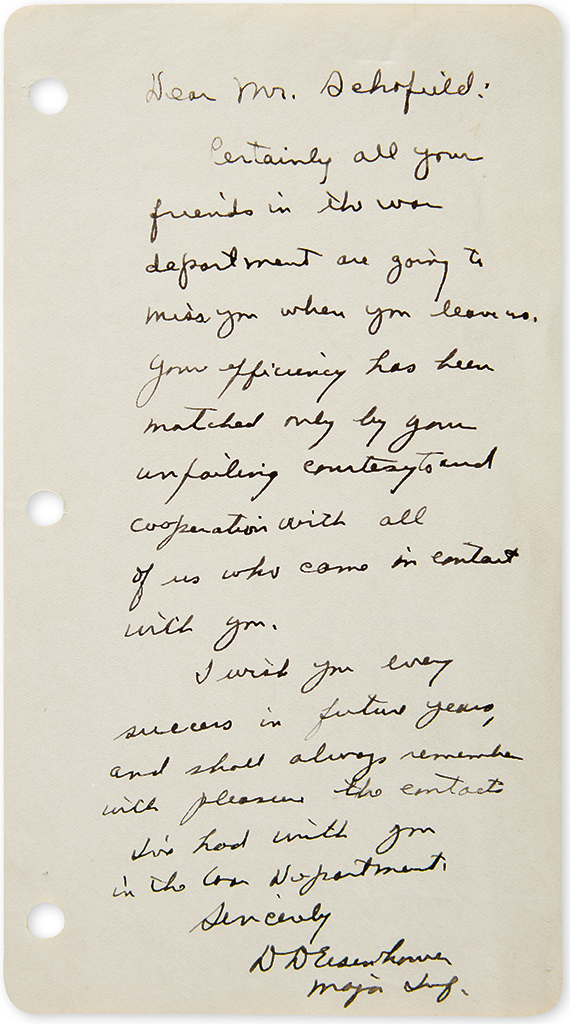 Dear Mr. Schofield:
Certainly all your
friends in the war
department are going to
miss you when you leave us.
Your efficiency has been
matched only by your
unfailing courtesy to and
cooperation with all
of us who come in contact
with you.
I wish you every
success in future years,
and shall always remember
with pleasure the contacts
I've had with you
in the War Department.
Sincerely
D D Eisenhower
Major Inf.